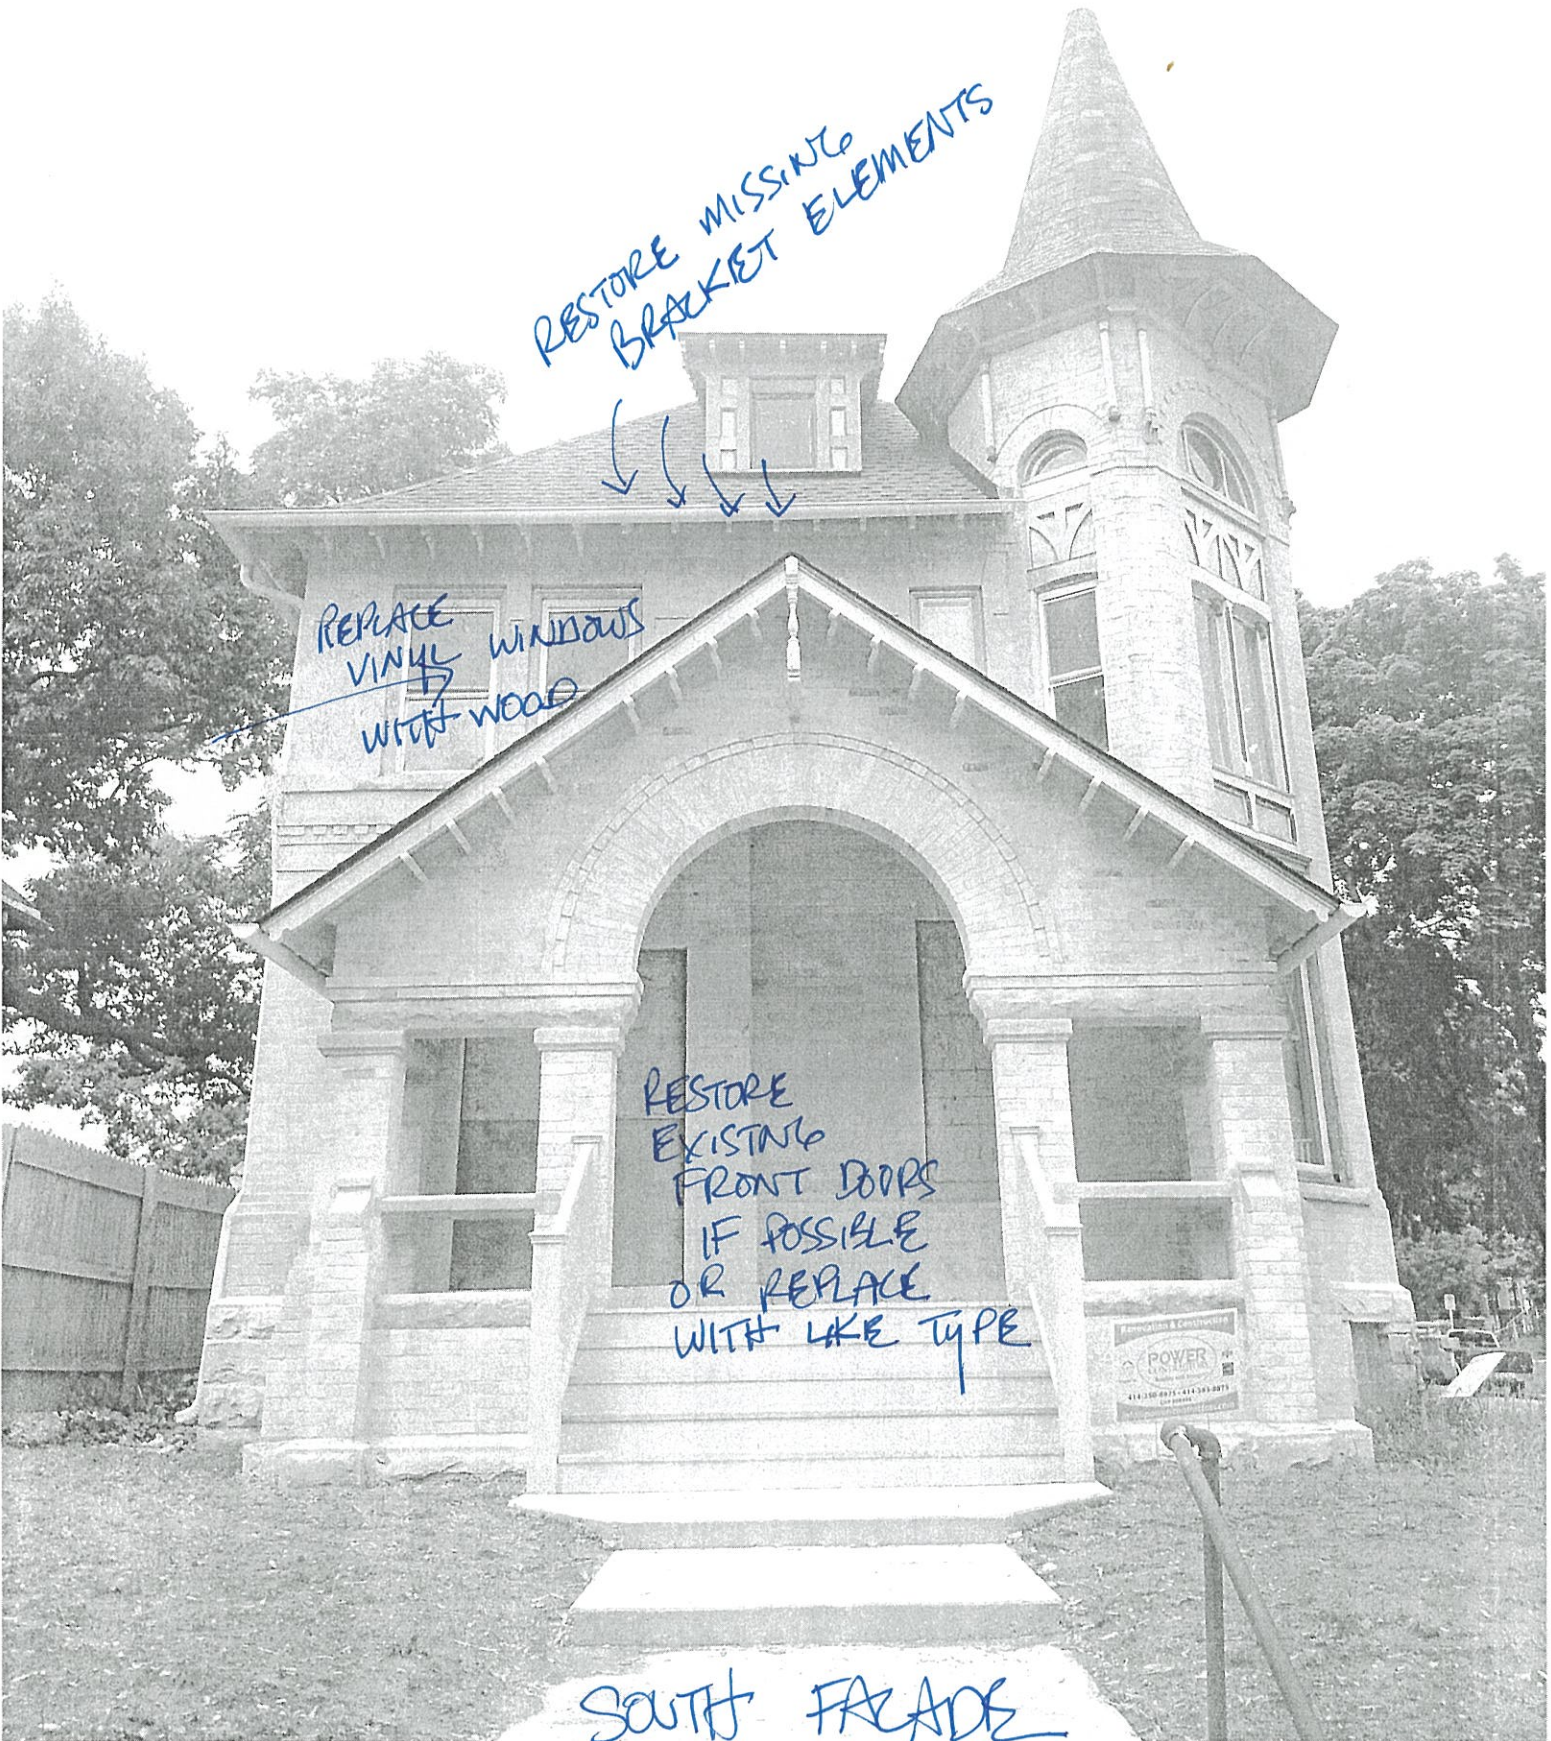 RESTORE MISSING
BRACKET ELEMENTS
REPLACE
VINYL WINDOWS
WITH WOOD
RESTORE
EXISTING
FRONT DOORS
IF POSSIBLE
OR REPLACE
WITH LIKE TYPE
& Construction
POWER
SOUTH FACADE